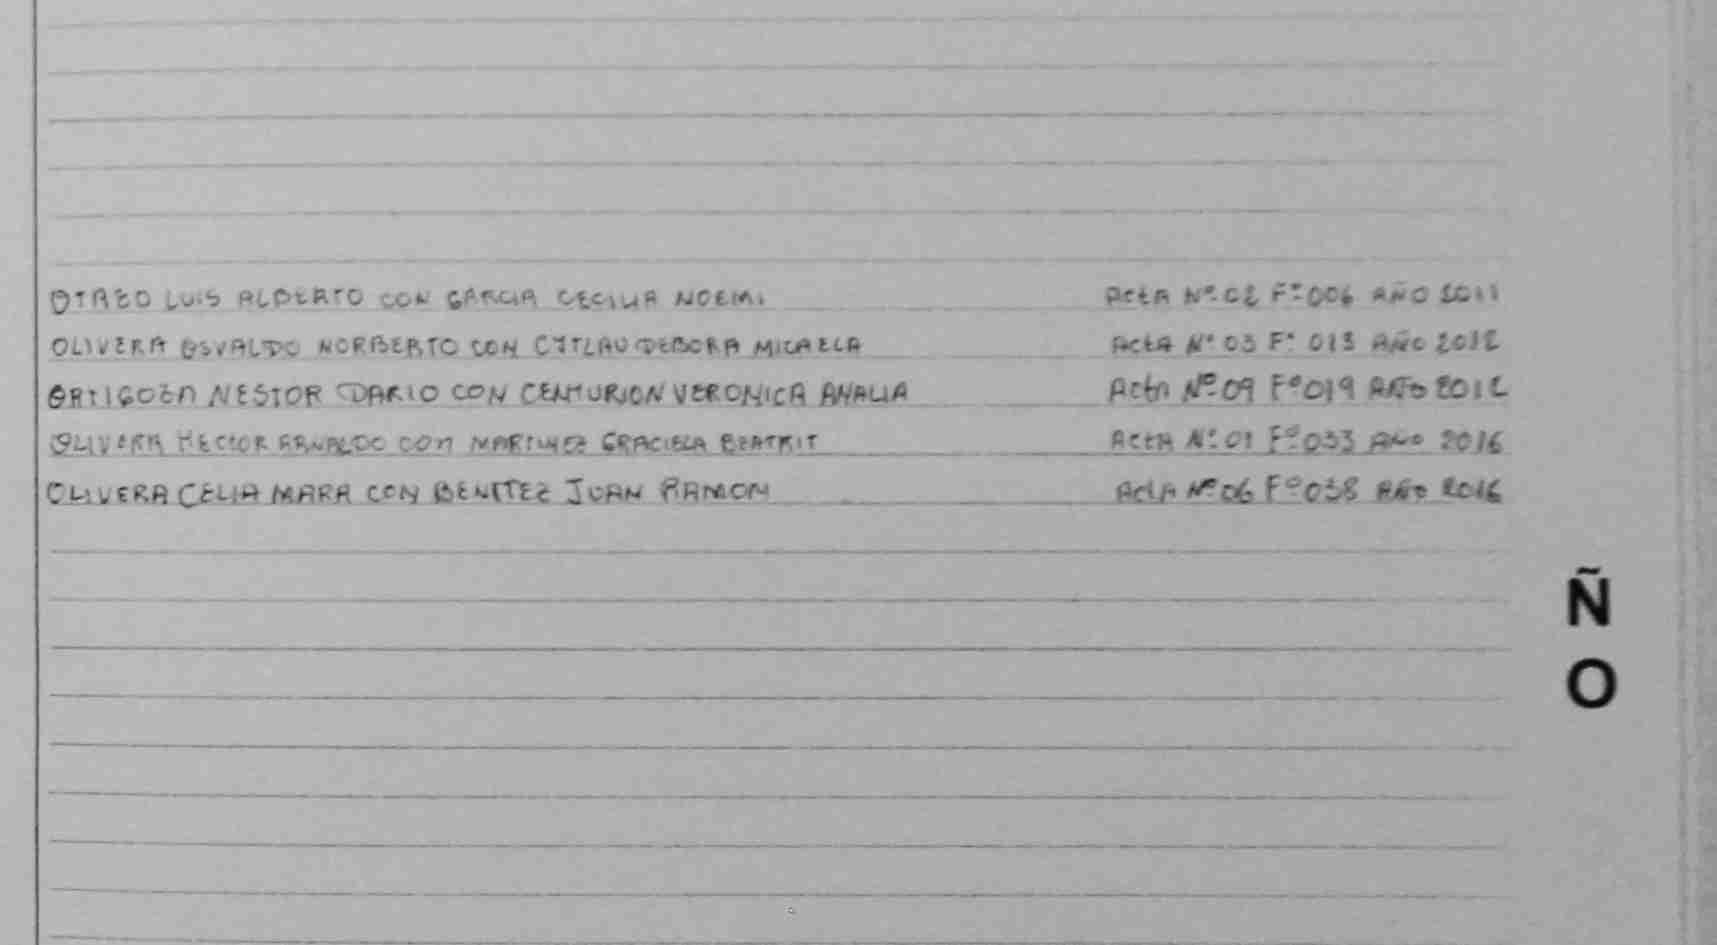 OTAZO LUIS ALBERTO CON GARCIA CECILIA NOEMI Acta Nº 02 Fº 006 AÑO 2011
OLIVERA OSVALDO NORBERTO CON DEBORA MICAELA Acta Nº 03 Fº 013 AÑO 2012
ORTIGOZA NESTOR DARIO CON CENTURION VERONICA ANALIA Acta Nº 09 Fº 019 AÑO 2012
OLIVERA HECTOR ARNALDO CON MARTINEZ GRACIELA BEATRIT Acta Nº 01 Fº 033 AÑO 2016
OLIVERA CELIA MARA CON BENITEZ JUAN RAMON Acta Nº 06 Fº 038 AÑO 2016
Ñ
O